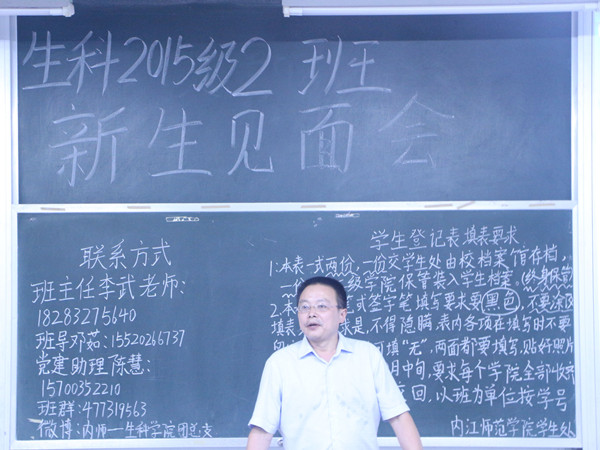 生科2015级2班
新生见面会
联系方式
班主任李武老师：
18283275640
班导邓茹：15520266737
党建助理陈慧：
15700352210
班群：477319563
微博：内师一生科学院团总支
学生登记表填表要求
1：本表一式两份，一份交学生处由校档案馆存档，
一份 级学院保管装入学生档案，(终身保管)
2.本 式签字笔填写要求要黑色，不要涂改
填表 求是，不得隐瞒，表内各项在填写时不要
可填“无”，两面都要填写，贴好照片
月中旬，要求每个学院全部收
回，以班为单位按学号
内江师范学院学生处